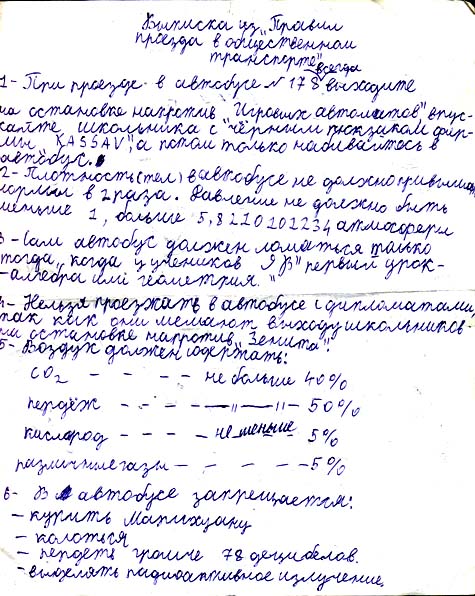 Выписка из "Правил
проезда в общественном
транспорте"
всегда
1- При проезде в автобусе №178 выходите
на остановке напротив "Игровых автоматов", впус-
кайте школьника с "чёрным рюкзаком фир-
мы KASSAV", а потом только набивайтесь в
автобус.
2- Плотность (тел) в автобусе не должно превышать
нормы в 2 раза. Давление не должно быть
меньше 1, больше 5,8210101234 атмосферы
3- Сам автобус должен ломаться только
тогда, когда у учеников 9 "В" первый урок-
-алгебра или геометрия."
4- Нельзя проезжать в автобусе с дипломатами,
так как они мешают выходу школьников
на остановке напротив "Зенита".
5- Воздух должен содержать:
CO2 - - - - не больше 40%
пердёж - - - - -"- -"- 50%
кислород - - - - не меньше 5%
различные газы - - - - - 5%
6- В автобусе запрещается:
- курить Марихуану
- колоться
- пердеть громче 78 децибелов.
- выделять радиоактивное излучение.